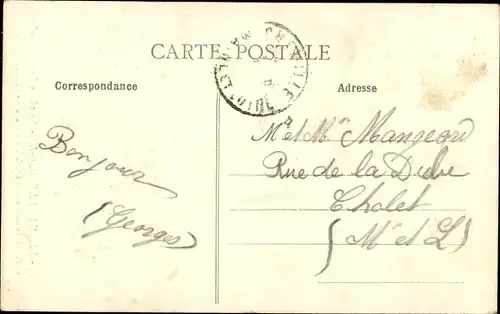 CARTE POSTALE
Correspondance
Adresse
Bonjour
(Georges)
M et Mme Mangeard
Rue de la
Cholet
(M et L)